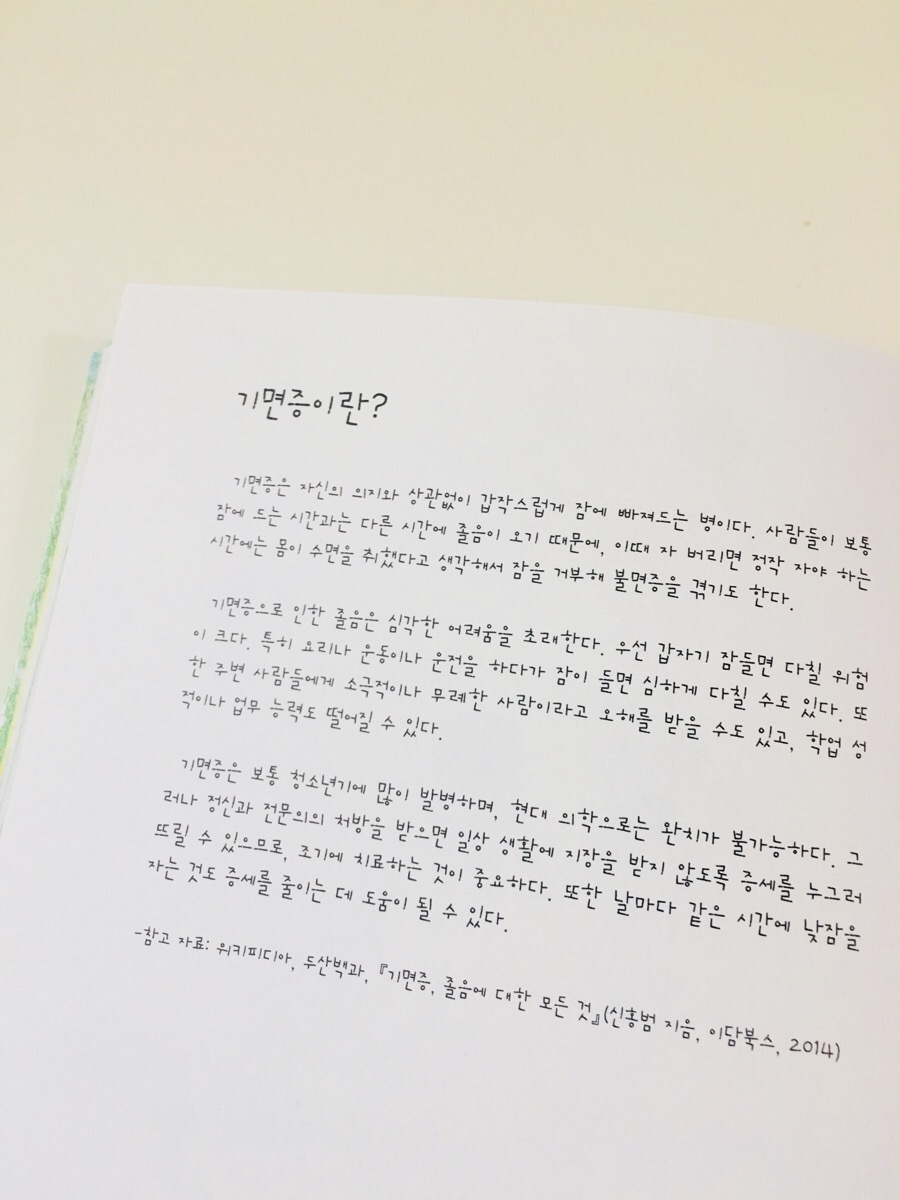 기면증이란?
기면증은 자신의 의지와 상관없이 갑작스럽게 잠에 빠져드는 병이다. 사람들이 보통
잠에 드는 시간과는 다른 시간에 졸음이 오기 때문에, 이때 자 버리면 정작 자야 하는
시간에는 몸이 수면을 취했다고 생각해서 잠을 거부해 불면증을 겪기도 한다.
기면증으로 인한 졸음은 심각한 어려움을 초래한다. 우선 갑자기 잠들면 다칠 위험
이 크다. 특히 요리나 운동이나 운전을 하다가 잠이 들면 심하게 다칠 수도 있다. 또
한 주변 사람들에게 소극적이나 무례한 사람이라고 오해를 받을 수도 있고, 학업 성
적이나 업무 능력도 떨어질 수 있다.
기면증은 보통 청소년기에 많이 발병하며, 현대 의학으로는 완치가 불가능하다. 그
러나 정신과 전문의의 처방을 받으면 일상 생활에 지장을 받지 않도록 증세를 누그러
뜨릴 수 있으므로, 조기에 치료하는 것이 중요하다. 또한 날마다 같은 시간에 낮잠을
자는 것도 증세를 줄이는 데 도움이 될 수 있다.
-참고 자료: 위키피디아, 두산백과, 『기면증, 졸음에 대한 모든 것』(신홍범 지음, 이담북스, 2014)